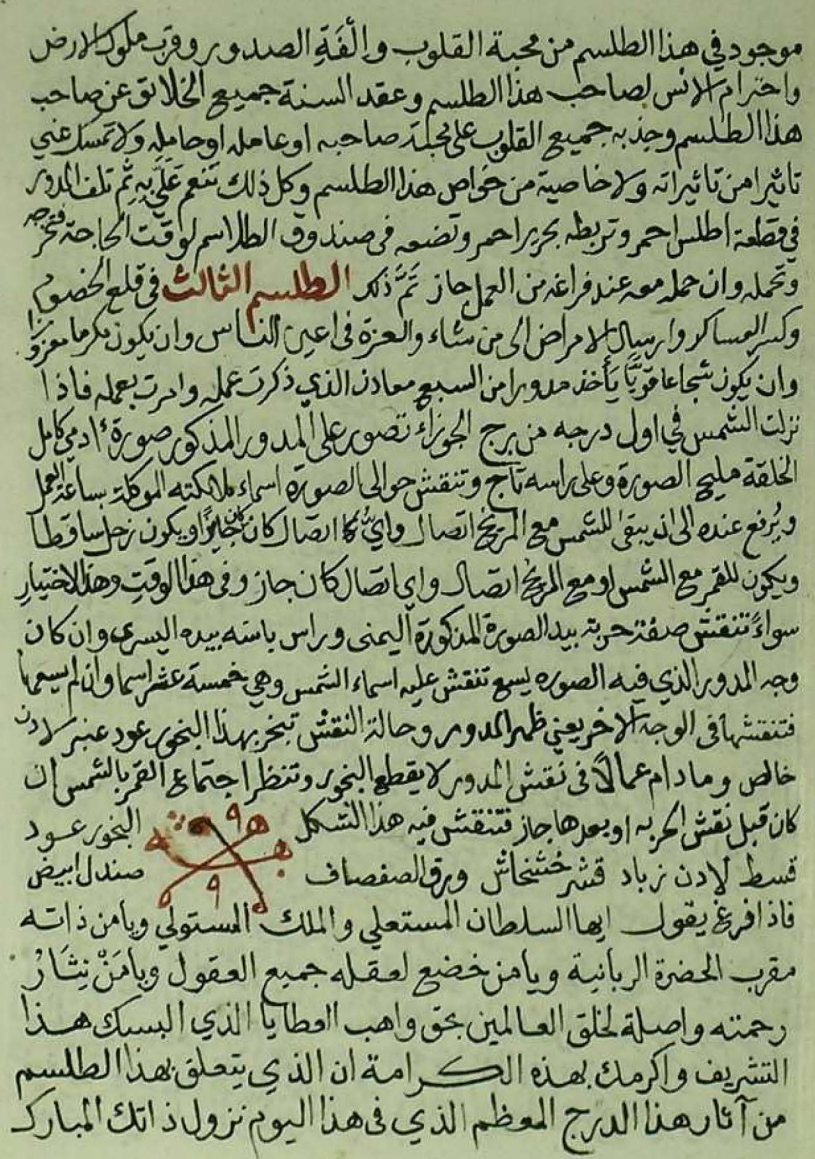 موجود في هذا الطلسم من محبة القلوب والفة الصدور وقرب ملوك الارض
واحترام الانس لصاحب هذا الطلسم وعقد السنة جميع الخلائق عن صاحب
هذا الطلسم وجذبه جميع القلوب على محبة صاحبه او عامله او حامله ولا تمسك عني
تاثيرا من تاثيراته ولا خاصية من خواص هذا الطلسم وكل ذلك تنعم علي به ثم تلف المدور
في قطعة اطلس احمر وتربطه بحرير احمر وتضعه في صندوق الطلاسم لوقت الحاجة فتخرجه
وتحمله وان حمله معه عند فراغه من العمل جاز تم ذلك الطلسم الثالث في قلع الخصوم
وكسر العساكر وارسال الامراض الى من شاء والعزة في اعين الناس وان يكون مكرما معززا
وان يكون شجاعا قويا يأخذ مدورا من السبع معادن الذي ذكرت عمله وامرت بعمله فاذا
نزلت الشمس في اول درجه من برج الجوزاء تصور على المدور المذكور صورة ادمي كامل
الخلقة مليح الصورة وعلى راسه تاج وتنقش حوالى الصورة اسماء ملائكته الموكلة بساعة العمل
ويرفع عنده الى ان يبقى للشمس مع المريخ اتصال واي اتصال كان جايزا ويكون زحل ساقطا
ويكون للقمر مع الشمس او مع المريخ اتصال واي اتصال كان جاز وفي هذا الوقت وهذا الاختيار
سواء تنقش صفة حربة بيد الصورة المذكورة اليمنى وراس باسنه بيده اليسرى وان كان
وجه المدور الذي فيه الصوره يسع تنقش عليه اسماء الشمس وهي خمسة عشر اسما وان لم يسعها
فتنقشها في الوجه الاخر يعني ظهر المدور وحالة النقش تبخر بهذا البخور عود عنبر لادن
خالص وما دام عمالا في نقش المدور لا يقطع البخور وتنظر اجتماع القمر بالشمس ان
كان قبل نقش الحربه او بعدها جاز فتنقش فيه هذا الشكل البخور عود
قسط لادن زباد قشر خشخاش ورق الصفصاف صندل ابيض
فاذا فرغ يقول ايها السلطان المستعلي والملك المستولي ويامن ذاته
مقرب الحضرة الربانية ويامن خضع لعقله جميع العقول ويامن نثار
رحمته واصلة لخلق العالمين بحق واهب العطايا الذي البسك هذا
التشريف واكرمك بهذه الكرامة ان الذي يتعلق بهذا الطلسم
من آثار هذا الدرج المعظم الذي في هذا اليوم نزول ذاتك المبارك